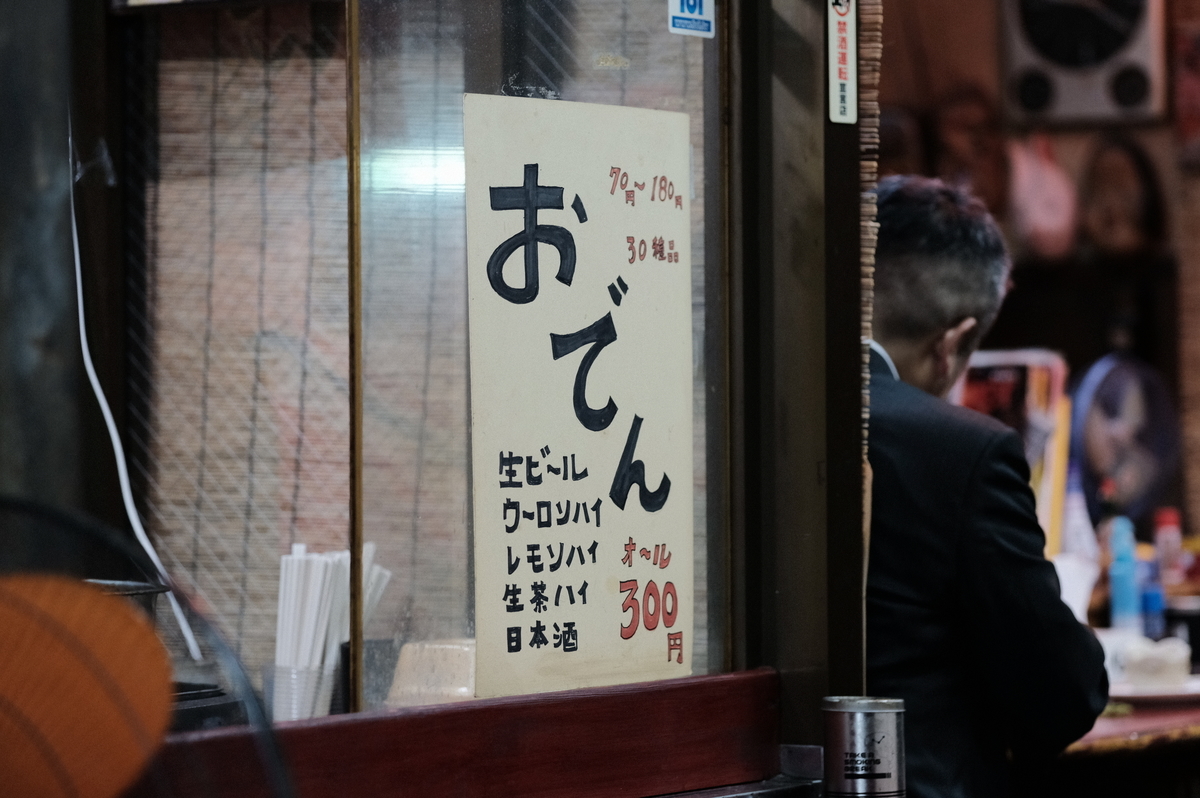 おでん
70円〜180円
30種品
生ビール
ウーロンハイ
レモンハイ
生茶ハイ
日本酒
オール
300円
禁酒運転